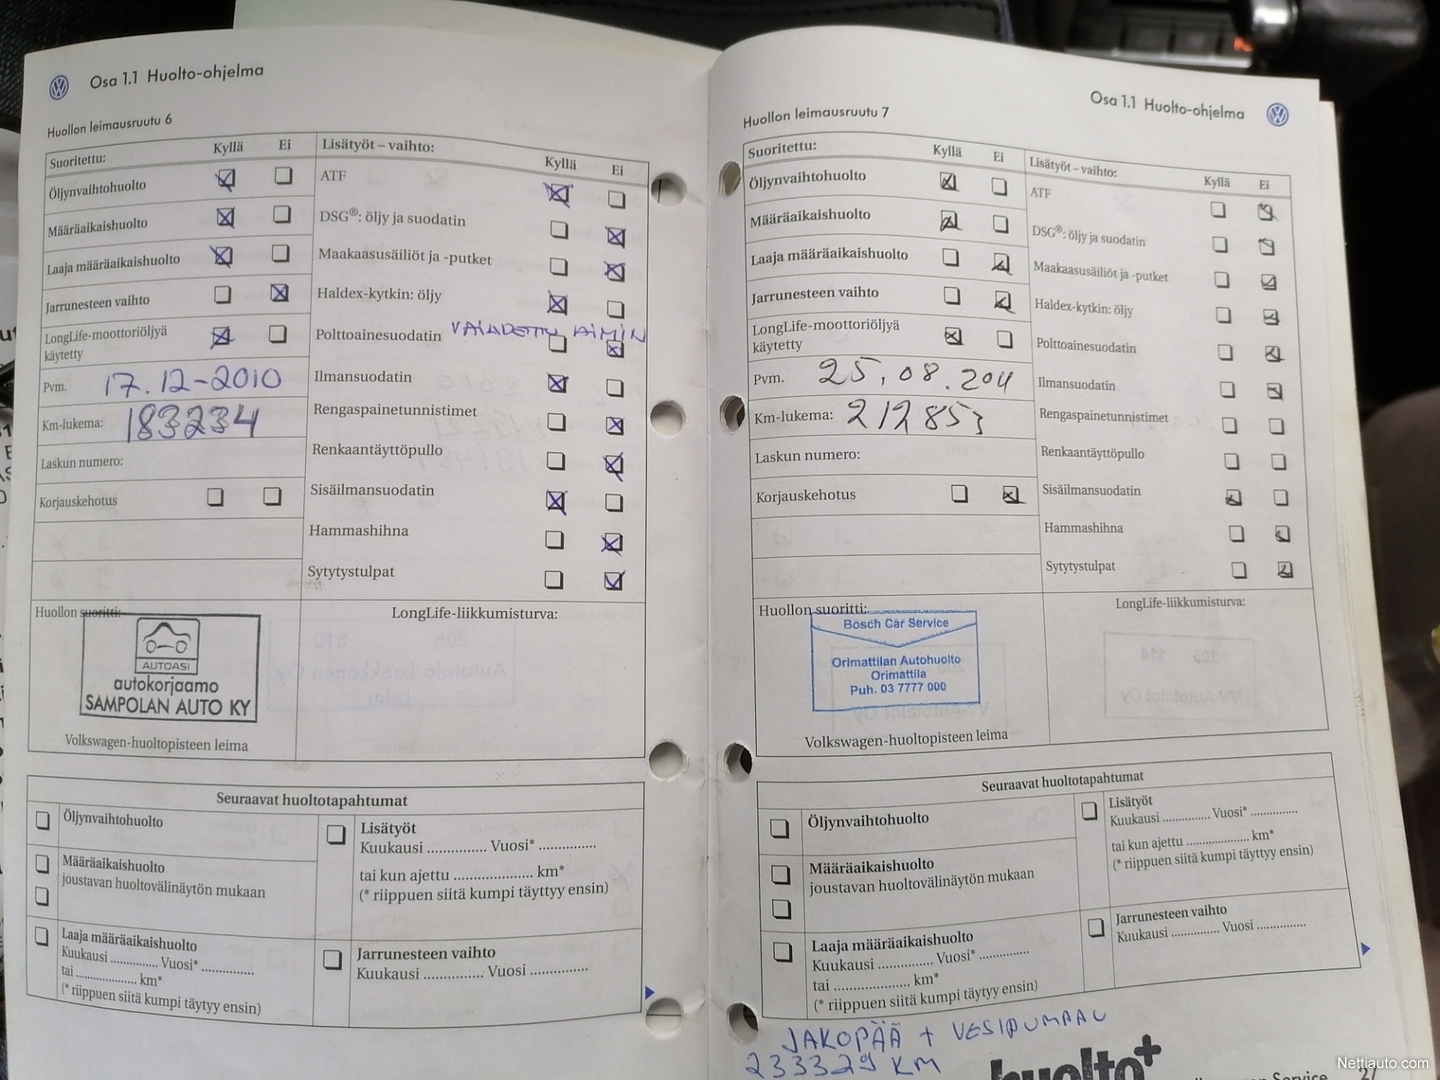 Osa 1.1 Huolto-ohjelma
Huollon leimausruutu 6
Suoritettu: Kyllä Ei
Öljynvaihtohuolto
Määräaikaishuolto
Laaja määräaikaishuolto
Jarrunesteen vaihto
LongLife-moottoriöljyä
käytetty
Pvm. 17.12-2010
Km-lukema: 183234
Laskun numero:
Korjauskehotus
Lisätyöt – vaihto: Kyllä Ei
ATF
DSG®: öljy ja suodatin
Maakaasusäiliöt ja -putket
Haldex-kytkin: öljy
Polttoainesuodatin
Ilmansuodatin
Rengaspainetunnistimet
Renkaantäyttöpullo
Sisäilmansuodatin
Hammashihna
Sytytystulpat
Huollon suoritti:
AUTOASI
autokorjaamo
SAMPOLAN AUTO KY
Volkswagen-huoltopisteen leima
LongLife-liikkumisturva:
Seuraavat huoltotapahtumat
Öljynvaihtohuolto
Määräaikaishuolto
joustavan huoltovälinäytön mukaan
Laaja määräaikaishuolto
Kuukausi .............. Vuosi* ..............
tai ................ km*
(* riippuen siitä kumpi täytyy ensin)
Lisätyöt
Kuukausi .............. Vuosi* ..............
tai kun ajettu .................... km*
(* riippuen siitä kumpi täyttyy ensin)
Jarrunesteen vaihto
Kuukausi .............. Vuosi ..............
Osa 1.1 Huolto-ohjelma
Huollon leimausruutu 7
Suoritettu: Kyllä Ei
Öljynvaihtohuolto
Määräaikaishuolto
Laaja määräaikaishuolto
Jarrunesteen vaihto
LongLife-moottoriöljyä
käytetty
Pvm. 25.08.2011
Km-lukema: 212853
Laskun numero:
Korjauskehotus
Lisätyöt – vaihto: Kyllä Ei
ATF
DSG®: öljy ja suodatin
Maakaasusäiliöt ja -putket
Haldex-kytkin: öljy
Polttoainesuodatin
Ilmansuodatin
Rengaspainetunnistimet
Renkaantäyttöpullo
Sisäilmansuodatin
Hammashihna
Sytytystulpat
Huollon suoritti:
Bosch Car Service
Orimattilan Autohuolto
Orimattila
Puh. 03 7777 000
Volkswagen-huoltopisteen leima
LongLife-liikkumisturva:
Seuraavat huoltotapahtumat
Öljynvaihtohuolto
Määräaikaishuolto
joustavan huoltovälinäytön mukaan
Laaja määräaikaishuolto
Kuukausi .............. Vuosi* ..............
tai .................... km*
(* riippuen siitä kumpi täyttyy ensin)
Lisätyöt
Kuukausi .............. Vuosi* ..............
tai kun ajettu .................... km*
(* riippuen siitä kumpi täyttyy ensin)
Jarrunesteen vaihto
Kuukausi .............. Vuosi ..............
JAKOPÄÄ + VESIPUMPPU
233329 KM
huolto+
Service
Nettiauto.com